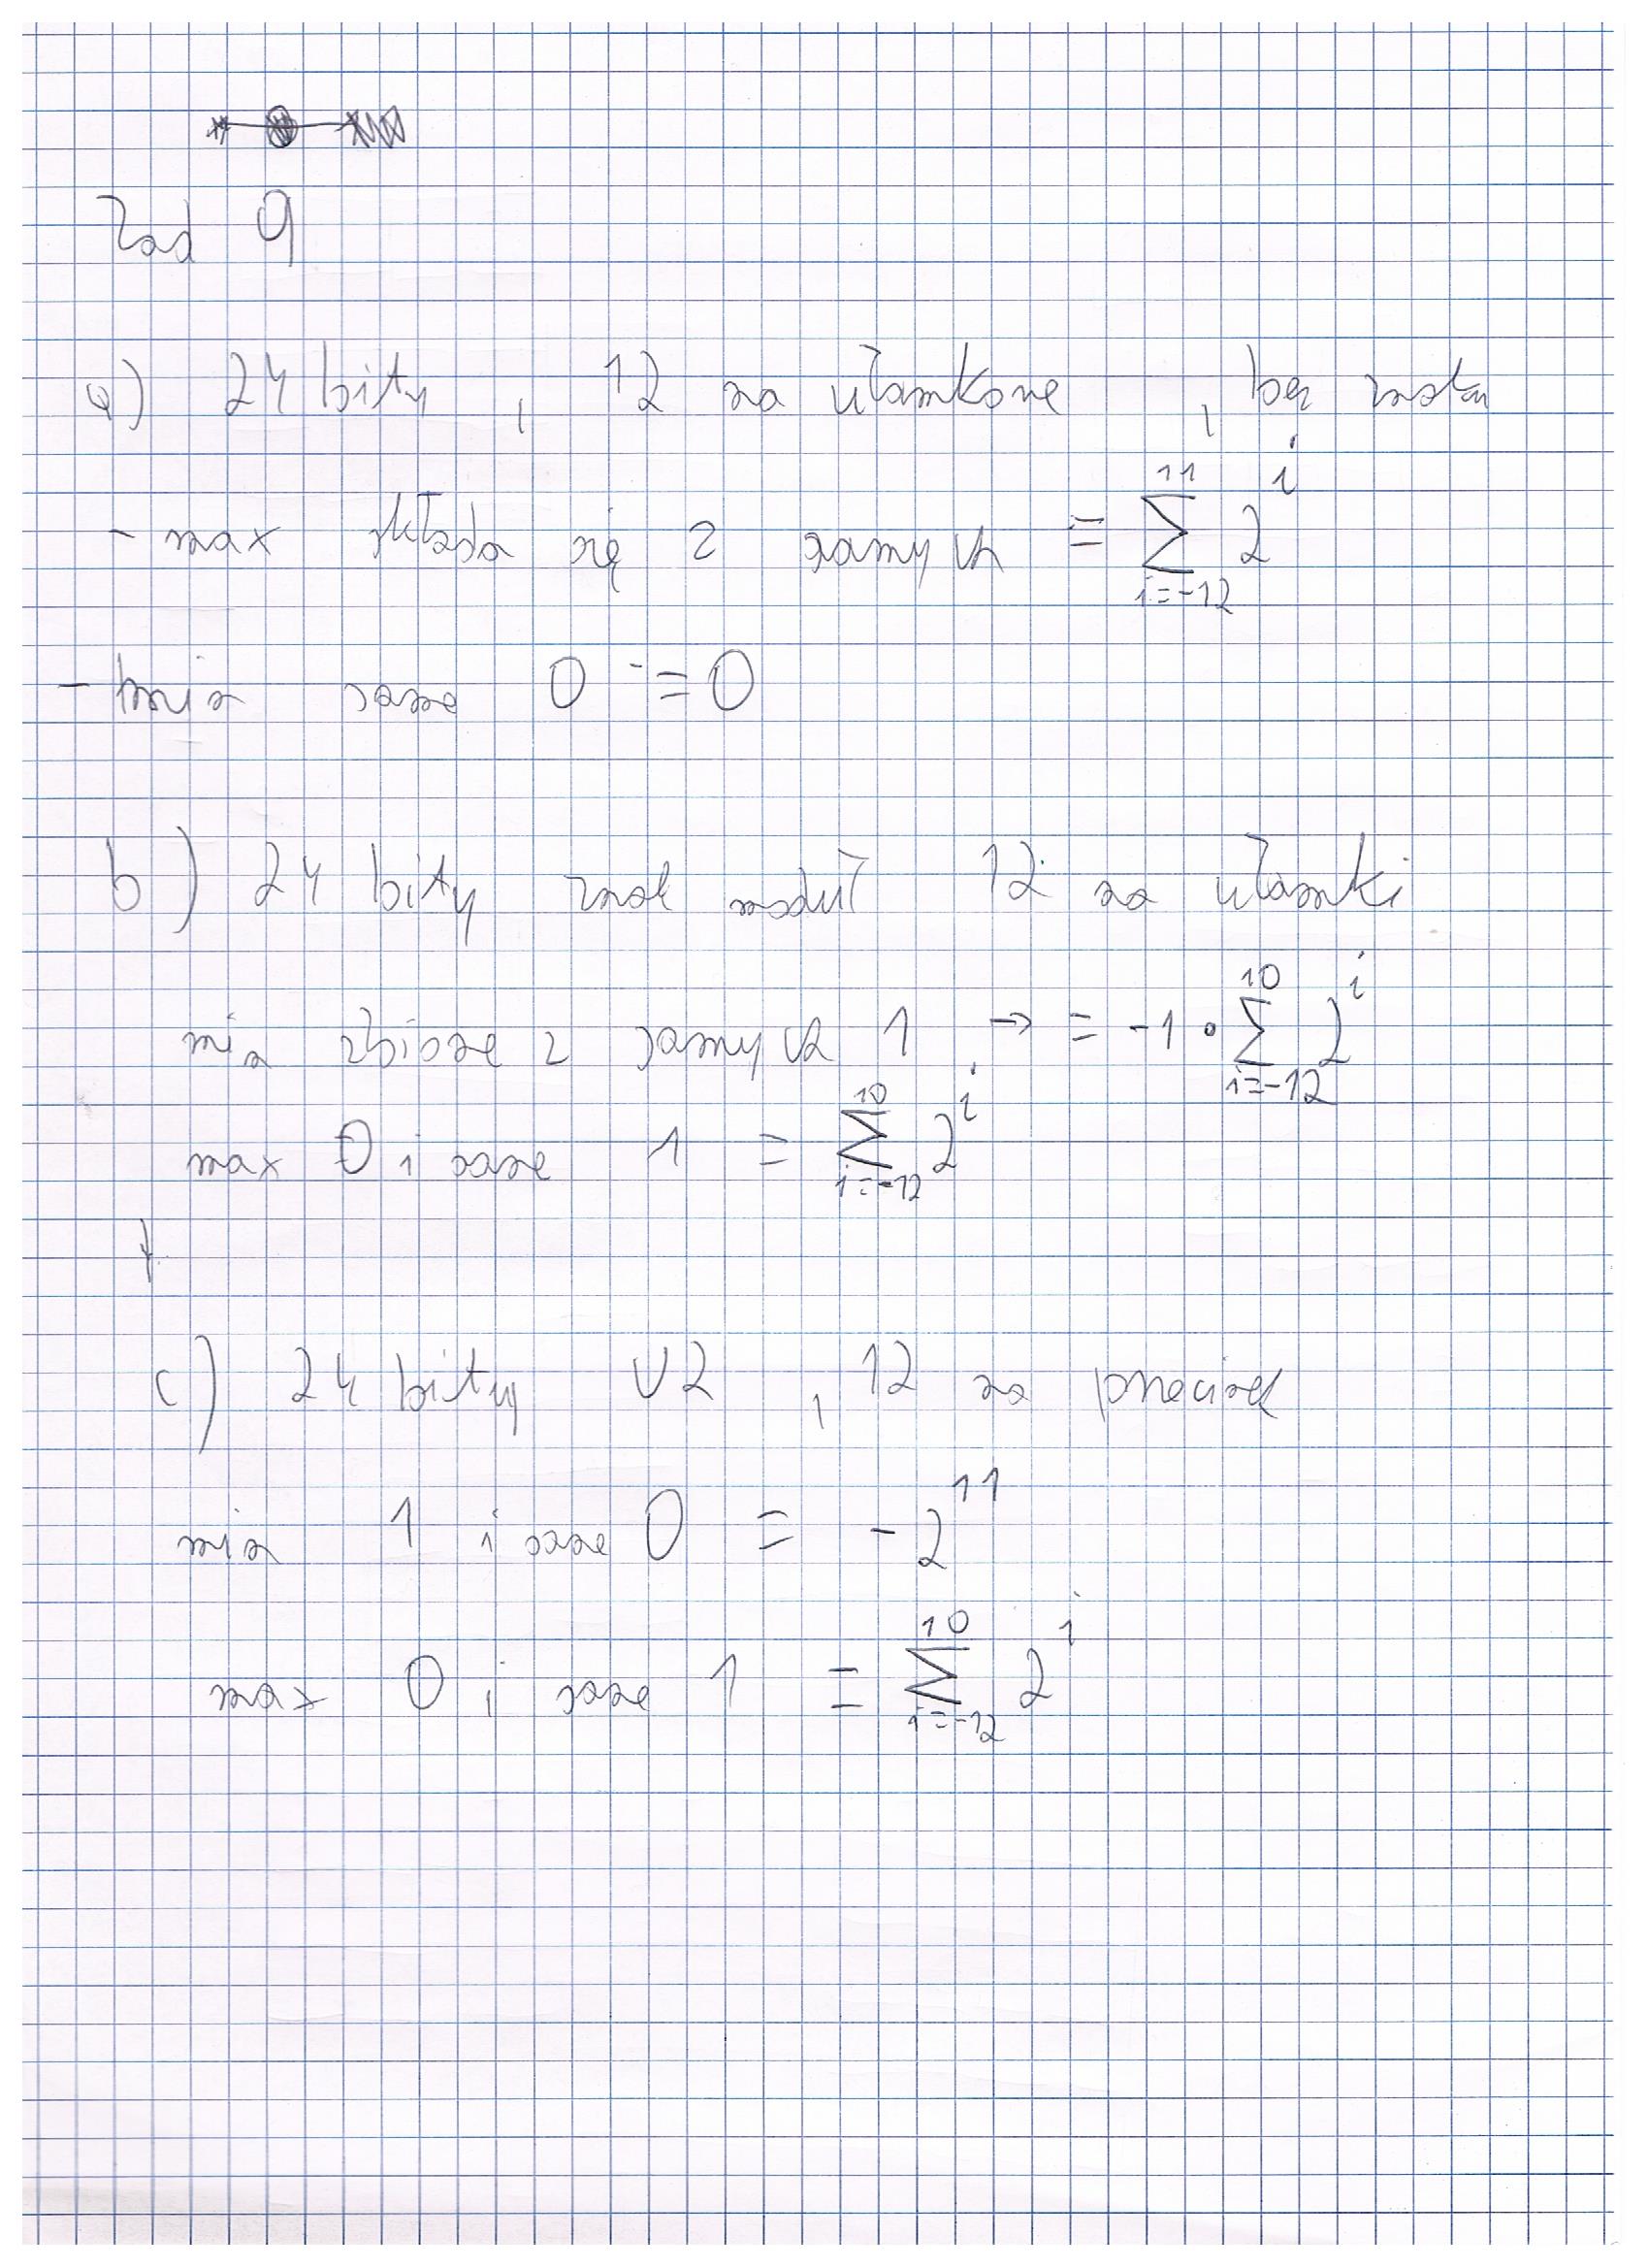 Zad 9
a) 24 bity , 12 na ułamkowe , bez znaku
- max składa się z samych = \sum_{i=-12}^{11} 2^i
- min same 0 = 0
b) 24 bity znak moduł 12 na ułamki
min złożone z samych 1 → = -1 · \sum_{i=-12}^{10} 2^i
max 0 i same 1 = \sum_{i=-12}^{10} 2^i
c) 24 bity U2 , 12 na
min 1 i same 0 = -2^{11}
max 0 i same 1 = \sum_{i=-12}^{10} 2^i